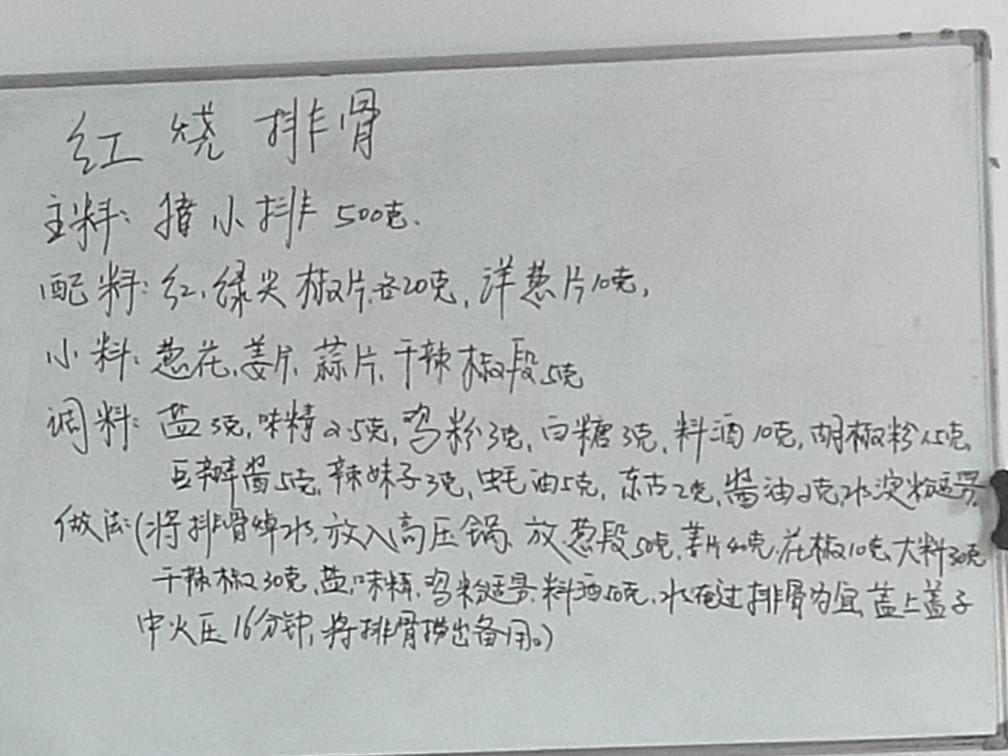 红烧排骨
主料:猪小排500克.
配料:红、绿尖椒片各20克,洋葱片10克,
小料:葱花、姜片、蒜片、干辣椒段5克
调料:盐3克,味精2.5克,鸡粉3克,白糖3克,料酒10克,胡椒粉1.5克
豆瓣酱5克,辣妹子3克,蚝油5克,东古2克,酱油2克,水淀粉适量
做法:(将排骨焯水,放入高压锅、放葱段50克,姜片40克,花椒10克,大料30克
干辣椒30克,盐,味精,鸡粉适量,料酒50克,水淹过排骨为宜,盖上盖子
中火压16分钟,将排骨捞出备用。)